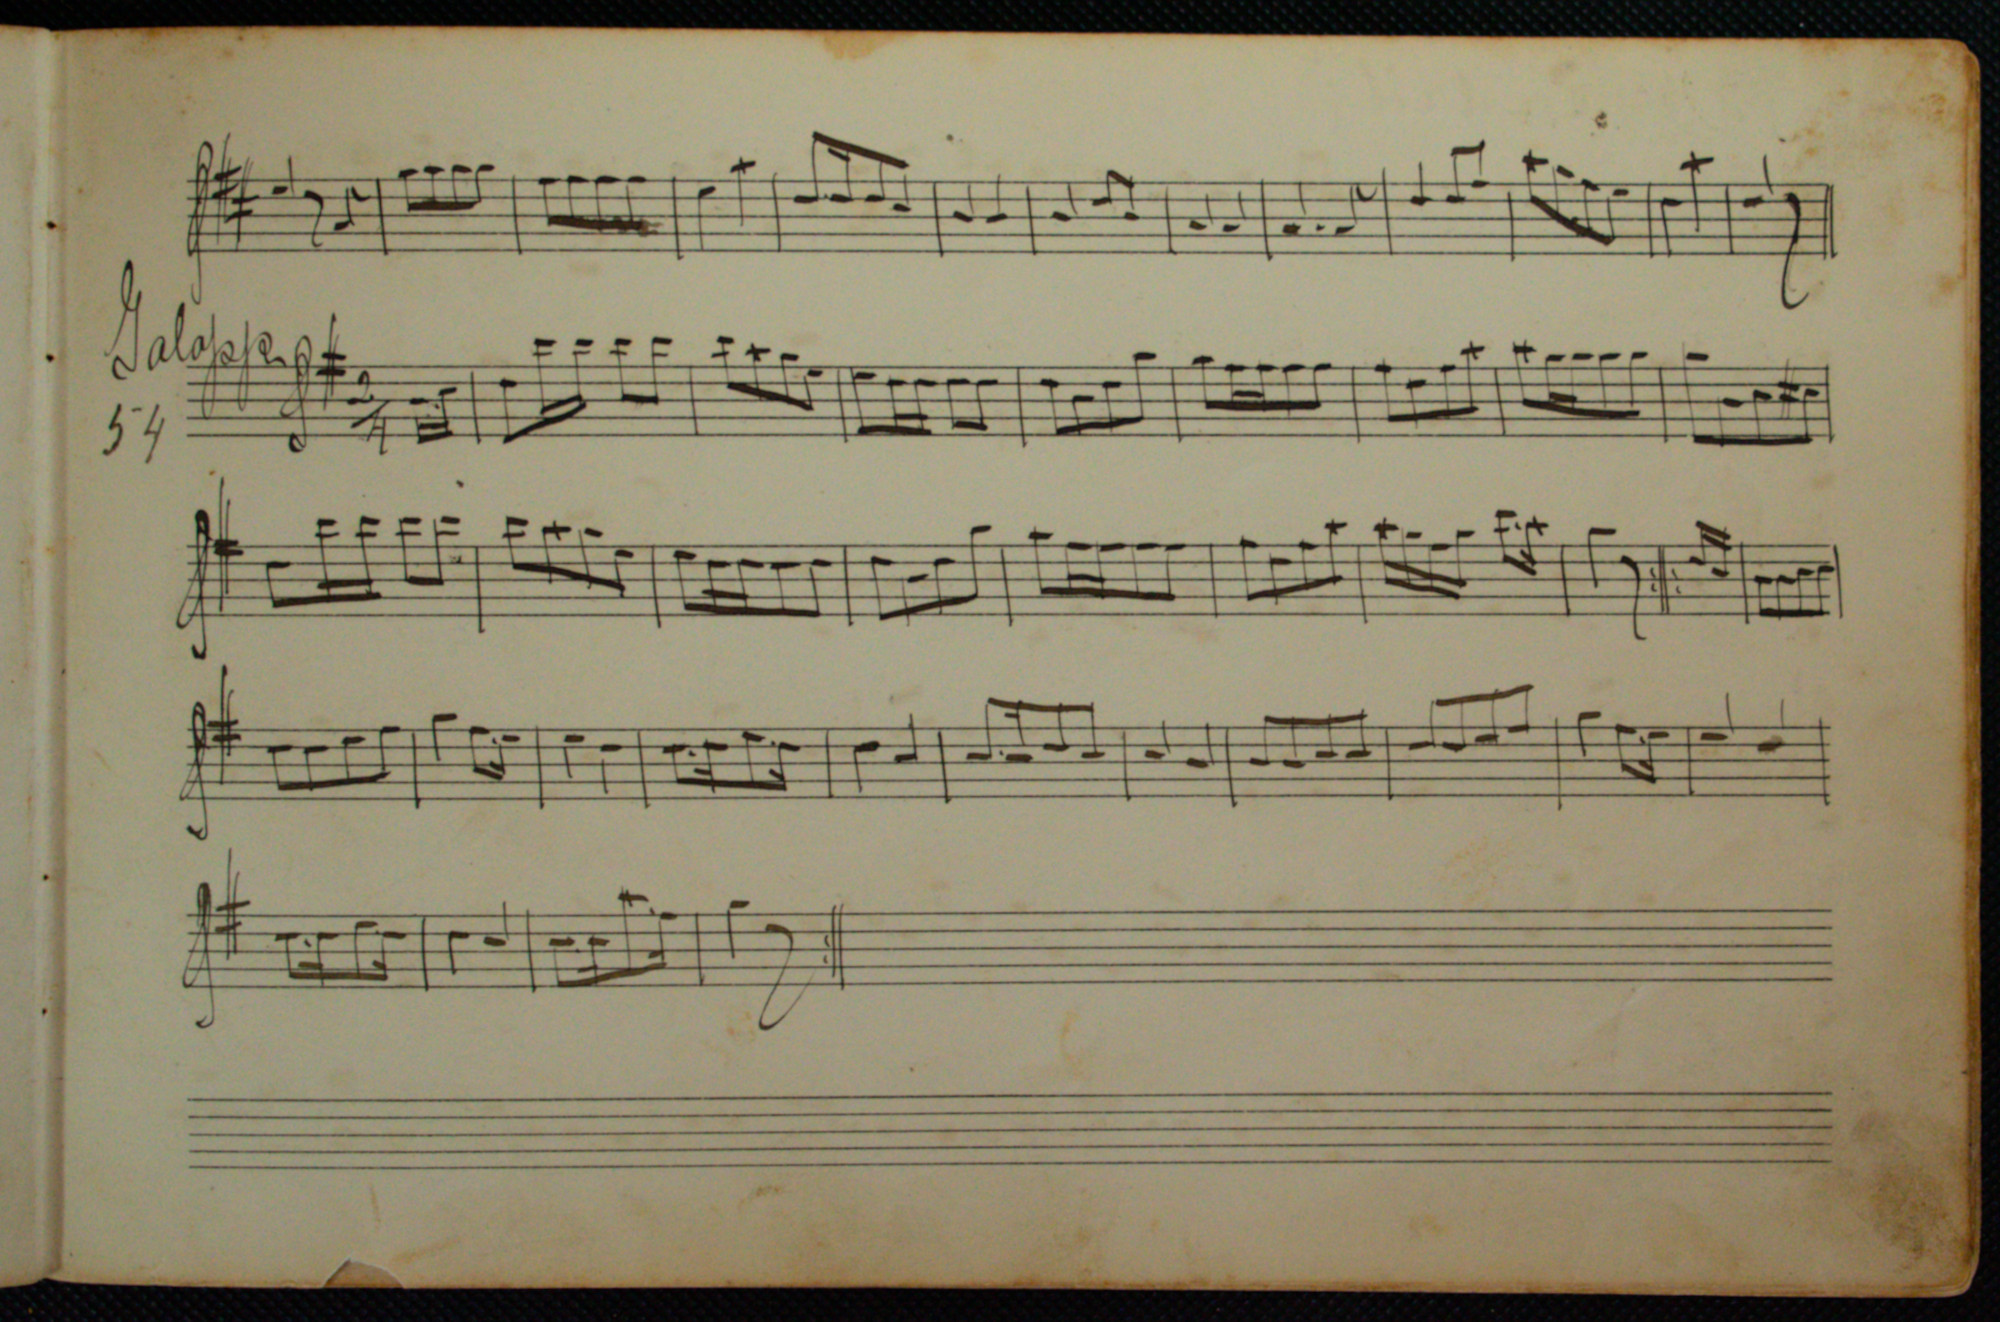 Galopp
54
2
4